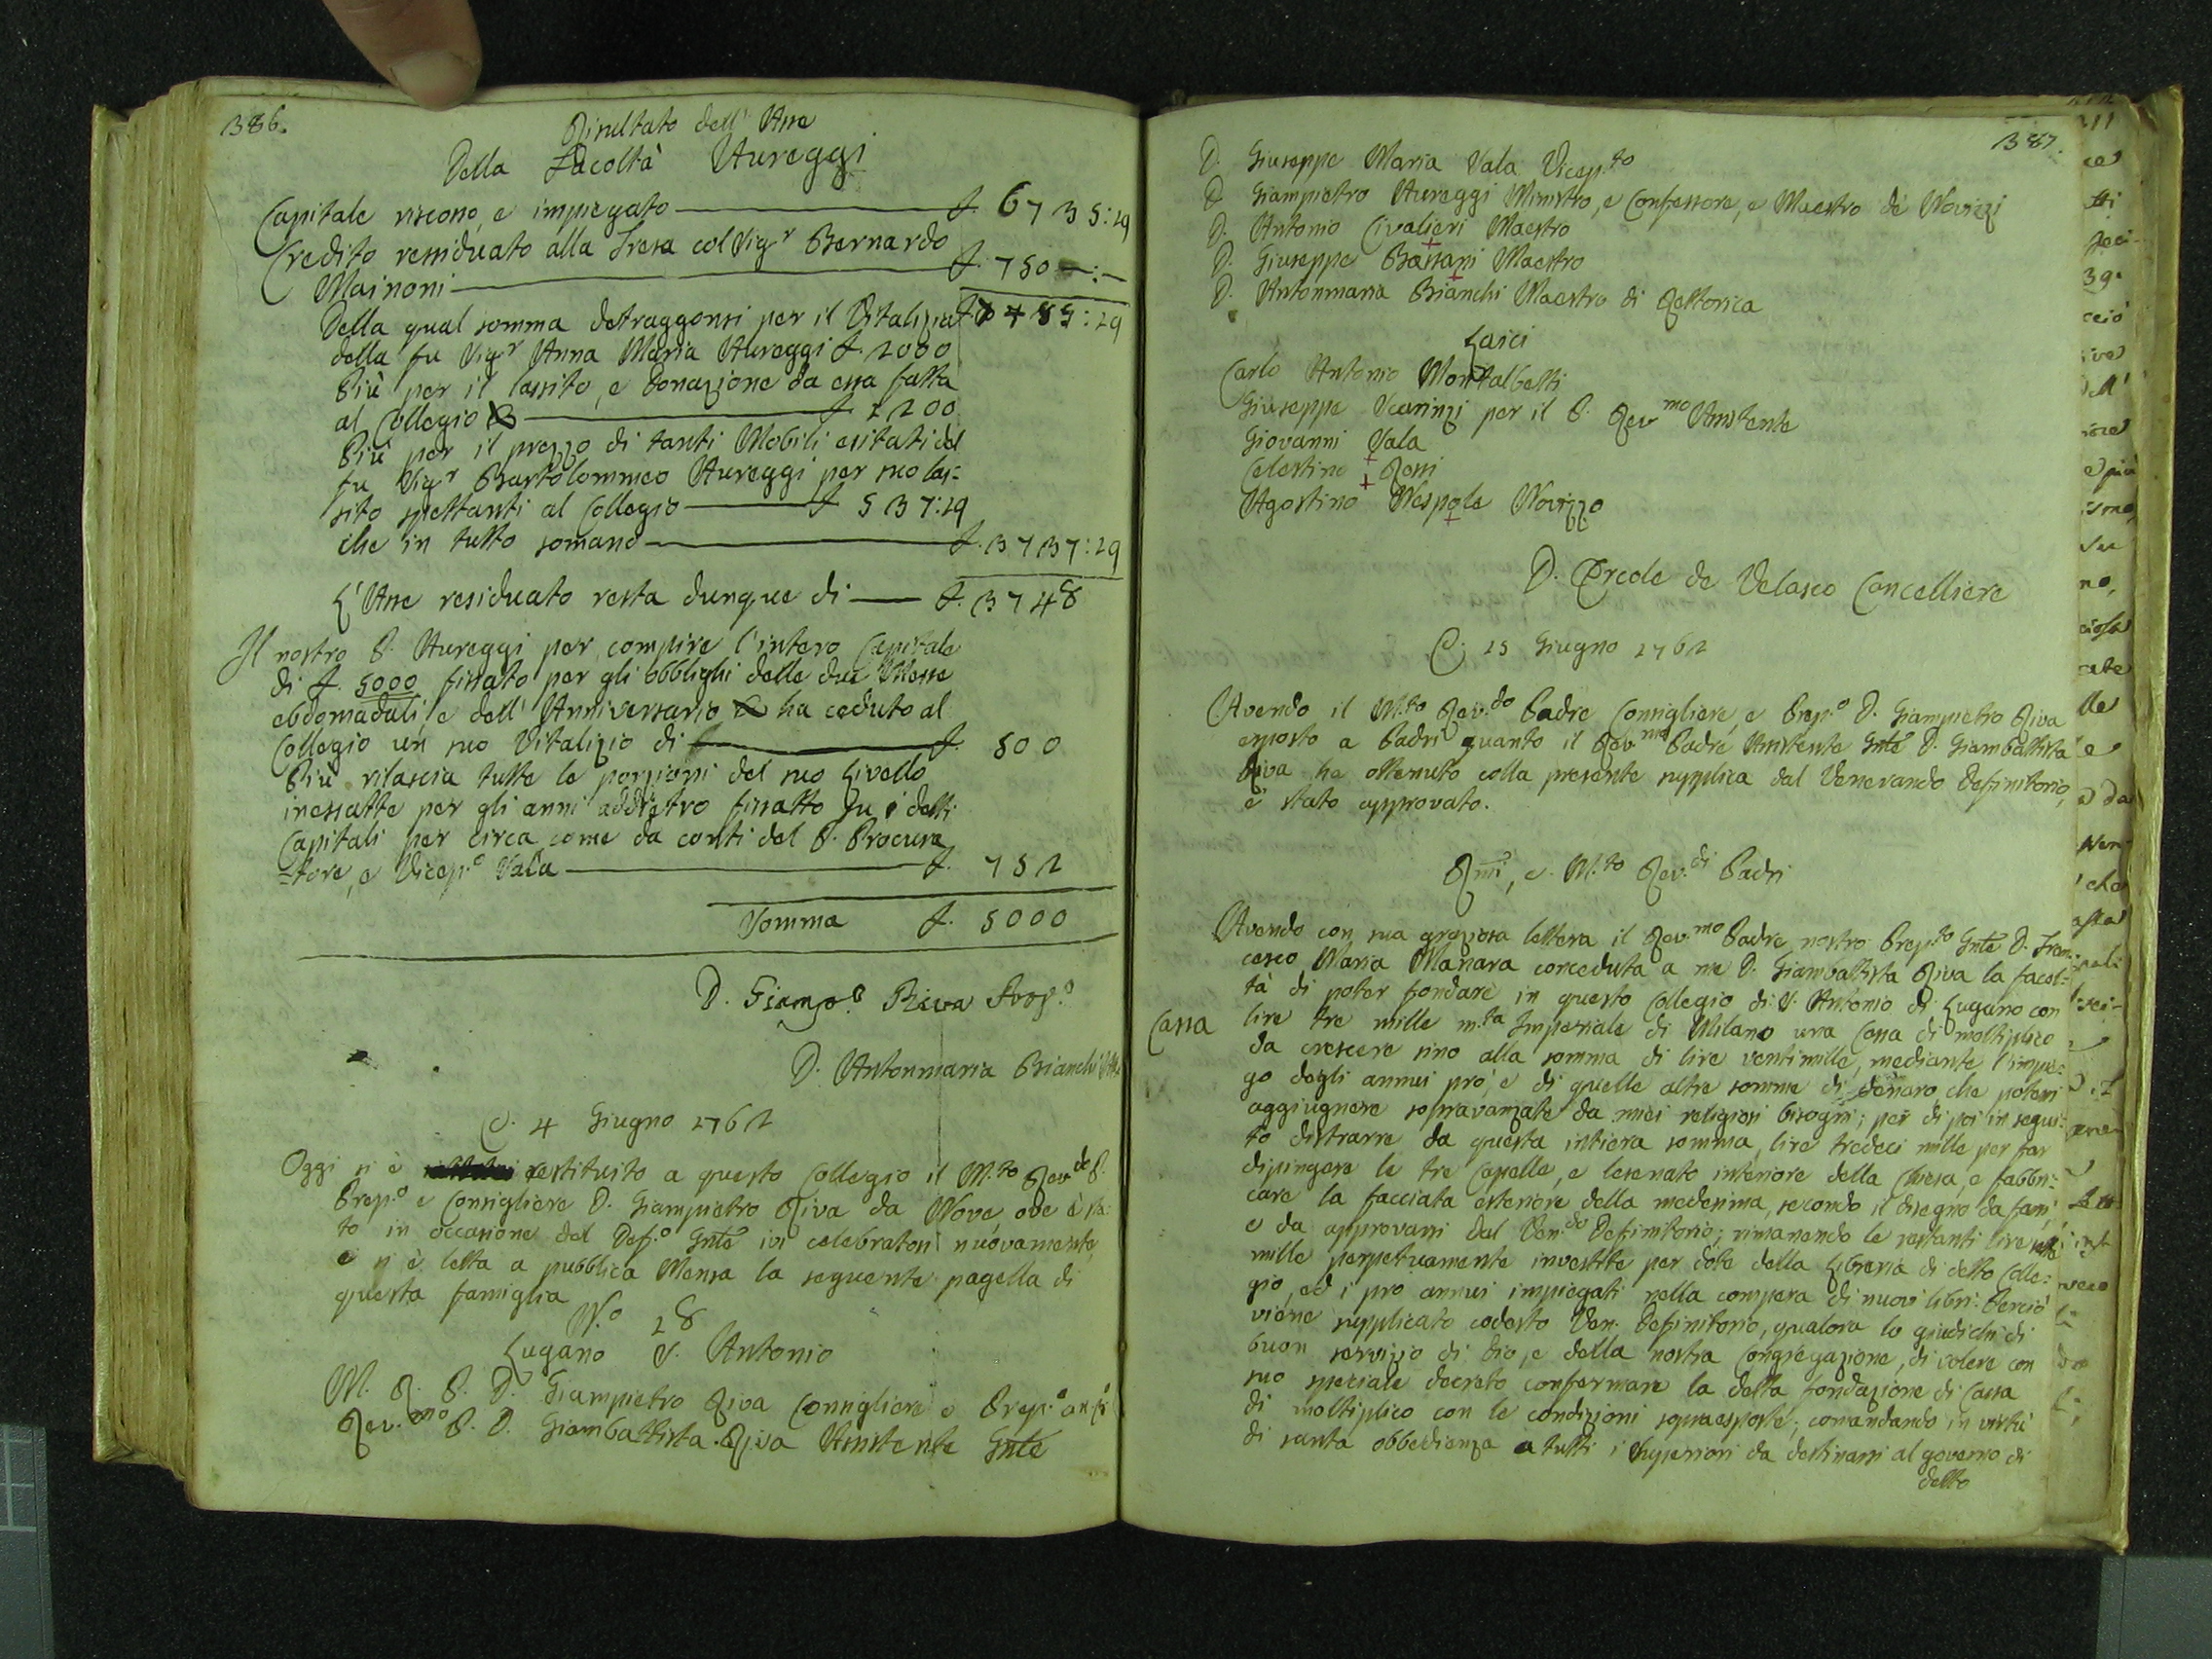 386.
Risultato dell' Asse
Della Facoltà Aureggi
Capitale riscono, e impiegato £. 6735:19
Credito ressiduato alla Tresa col Sig.r Bernardo
Mainoni £. 750 —:—
Della qual somma detraggonsi per il Vitalizio £. 7485:19
della fu Sig.r Anna Maria Aureggi £. 2000
Più per il lassito, e donazione da essa fatta
al Collegio £ 1200
Più per il prezzo di tanti Mobili esitati del
fu Sig.r Bartolommeo Aureggi per suo las=
sito spettanti al Collegio £ 537:19
che in tutto somano £. 3737:19
L'Asse residuato resta dunque di £. 3748
Il nostro P. Aureggi per compire l'intero Capitale
di £. 5000 fissato per gli obblighi delle due Messe
ebdomadali, e dell' Anniversario ha ceduto al
Collegio un suo Vitalizio di £. 500
Più rilascia tutte le porzioni del suo Livello
inessatte per gli anni addietro fissatto su i detti
Capitali per circa come da conti del P. Procura
=tore, e Vicep.o Vala £. 752
Somma £. 5000
D. Giamp.o Riva Prep.o
D. Antonmaria Bianchi
A. 4 Giugno 1762
Oggi si è restituito a questo Collegio il M.to Rev.do P.
Prep.o e Consigliere D. Giampietro Riva da Nove, ove è sta:
to in occasione del Def.o Gnle ivi celebratosi nuovamente
e si è letta a pubblica Mensa la seguente pagella di
questa famiglia
N.o 18
Lugano S. Antonio
M. R. P. D. Giampietro Riva Consigliere e Prep.o
Rev.mo P. D. Giambattista Riva Assistente Gnle
387.
D. Giuseppe Maria Vala Vicep.to
D. Giampietro Aureggi Ministro, e Confessore, e Maestro de' Novizzi
D. Antonio Civalieri Maestro
D. Giuseppe Bassani Maestro
D. Antonmaria Bianchi Maestro di Rettorica
Laici
Carlo Antonio Montalbetti
Giuseppe Scarinzi per il P. Rev.mo Assistente
Giovanni Vala
Celestino Rossi
Agostino Nespole Novizzo
D. Ercole de Velasco Cancelliere
A. 15 Giugno 1762
Avendo il M.to Rev.do Padre Consigliere, e Prep.o D. Giampietro Riva
esposto a Padri quanto il Rev.mo Padre Assistente Gnle D. Giambattista
Riva ha ottenuto colla presente supplica dal Venerando Definitorio,
è stato approvato.
Rmi, e M.to Rev.di Padri
Avendo con sua graziosa lettera il Rev.mo Padre nostro Prep.to Gnle D. Fran=
cesco Maria Manara conceduta a me D. Giambattista Riva la facol=
tà di poter fondare in questo Collegio di S. Antonio di Lugano con
Cassa
lire tre mille m.ta Imperiale di Milano una Cassa di moltiplico
da crescere sino alla somma di lire ventimille, mediante l'impie=
go degli annui prò, e di quelle altre somme di denaro, che potessi
aggiugnere sopravanzate da miei religiosi bisogni; per di poi in segui=
to distrarre da questa intiera somma lire tredeci mille per far
dipingere le tre Capelle, e lesenato interiore della Chiesa, e fabbri=
care la facciata esteriore della medesima, secondo il disegno da farsi,
e da approvarsi dal Ven.do Definitorio; rimanendo le restanti lire sette
mille perpetuamente investite per dote della Libreria di detto Colle=
gio, ed i pro annui impiegati nella compera di nuovi libri. Perciò
viene supplicato codesto Ven. Definitorio, qualora lo giudichi di
buon servizio di Dio, e della nostra Congregazione, di volere con
suo speciale decreto confermare la detta fondazione di Cassa
di moltiplico con le condizioni sopraesposte; comandando in virtù
di santa obbedienza a tutti i Superiori da destinarsi al governo di
detto